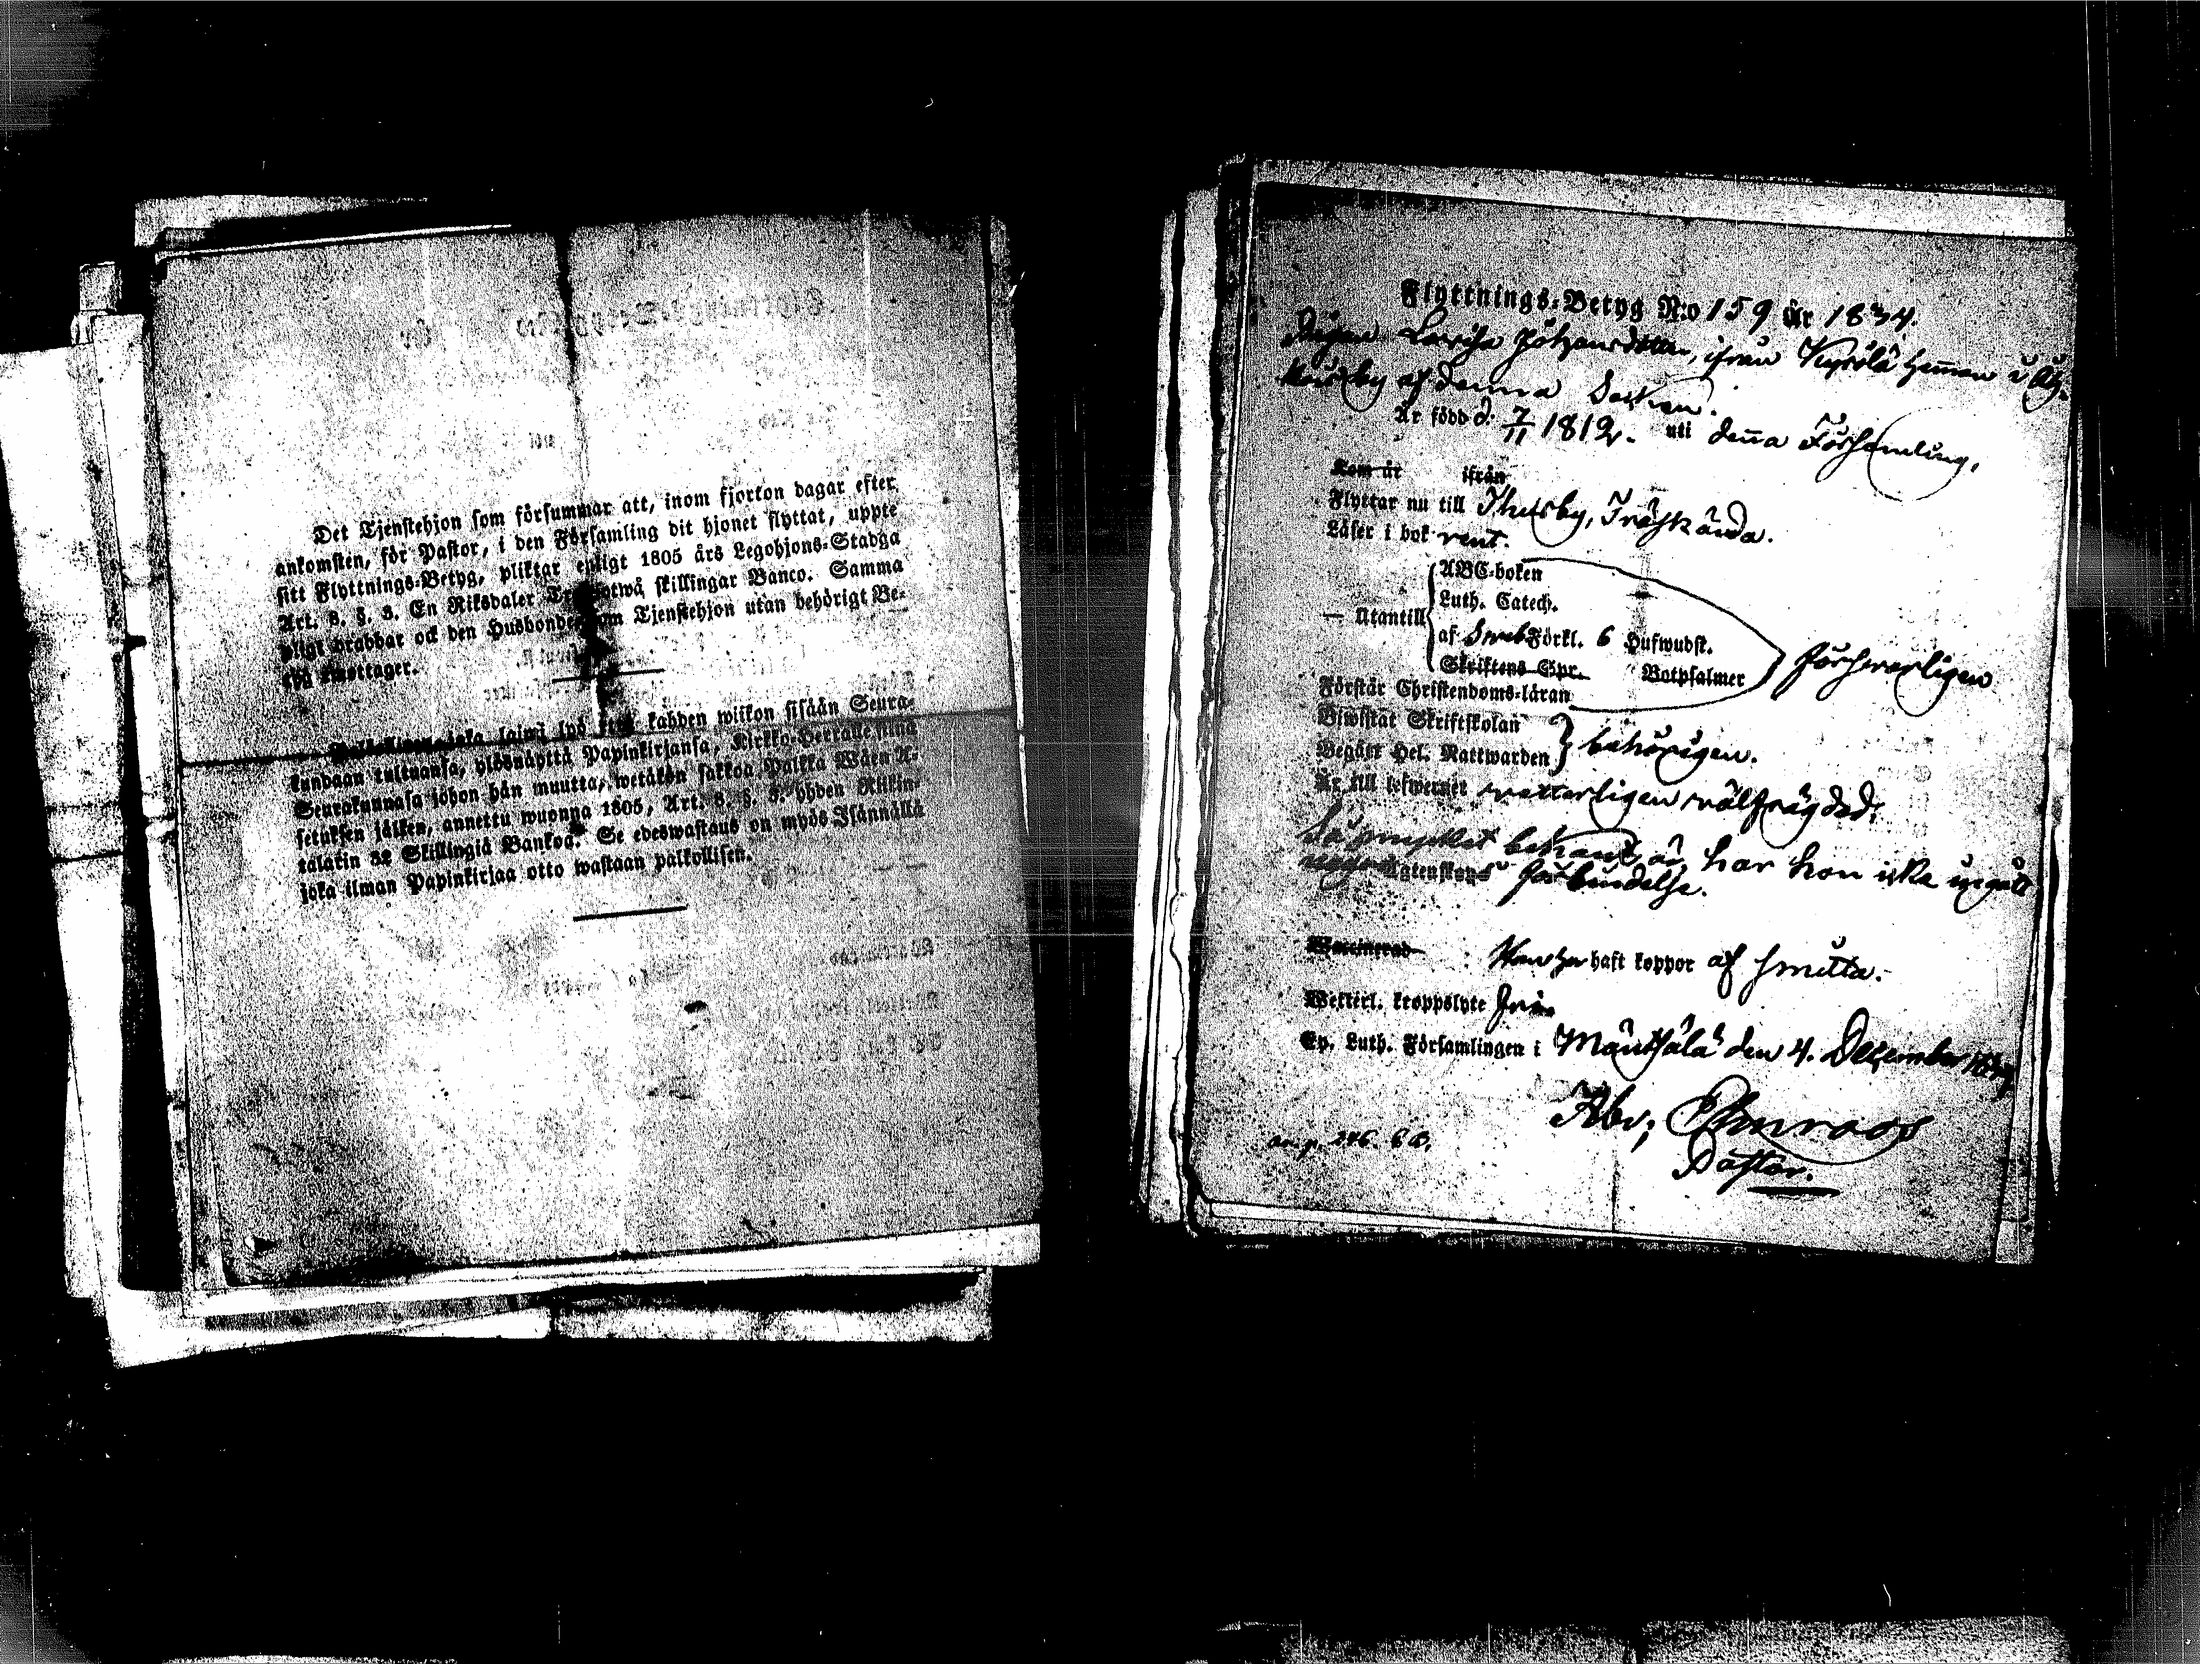 Det Tjenstehjon som försummar att, inom fjorton dagar efter
ankomsten, för Pastor, i den Församling dit hjonet flyttat, uppte
sitt Flyttnings-Betyg, pliktar enligt 1805 års Legohjons-Stadga
Art. 8. §. 3. En Riksdaler skillingar Banco. Samma
pligt drabbar ock den Husbonde som Tjenstehjon utan behörigt Be-
tyg emottager.
laiwi lyö kahden wiikon sisään Seura-
kundaan tultuansa, ylösnäyttä Papinkirjansa, Kirkko-Herralle siinä
Seurakunnasa johon hän muutta, wetäkön sakkoa Palkka Wäen A-
setuksen jälken, annettu wuonna 1805, Art. 8. §. 3. yhden Riikin-
talarin 32 Skillingiä Bankoa. Se edeswastaus on myös Isännällä
joka ilman Papinkirjaa otto wastaan palkollisen.
Flyttnings-Betyg N:o 159 år 1834.
Pigan Lovisa ifrån Kyrölä Heman i
by af denna Socken.
Är född d. 7/11 1812. uti denna Församling,
Kom år ifrån
Flyttar nu till Thusby, Träskända.
Läser i bok rent.
— Utantill
ABC-boken
Luth. Catech.
af Förkl. 6 Hufwudst.
Skriftens Spr. Botpsalmer
försvarligen
Förstår Christendoms-läran
Biwistat Skriftskolan
Begått Hel. Nattwarden
behörigen.
Är till lefwernet wetterligen wälfrägdad.
Så mycket bekant är, har hon icke ingått
någon Ägtenskaps förbindelse.
Vaccinerad Hon har haft koppor af smitta.
Wetterl. kroppslyte fri.
Ev. Luth. Församlingen i Mäntsälä den 4. December 1834
Abr; Ehnroos
Pastor.